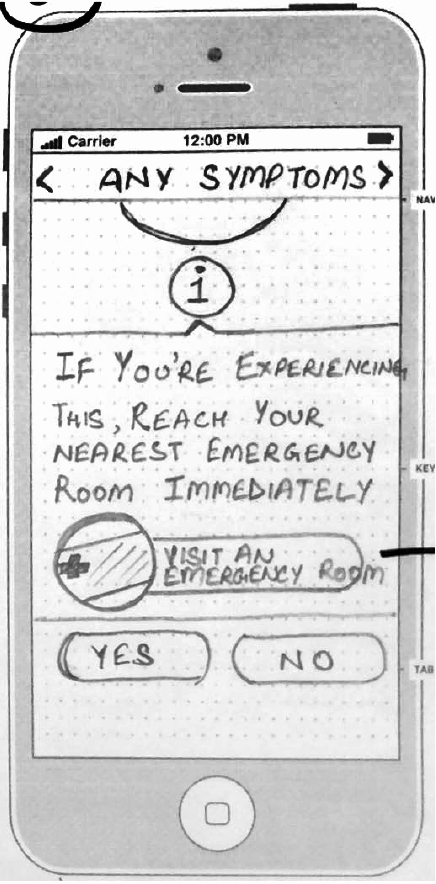 Carrier 12:00 PM
< ANY SYMPTOMS >
NAV
i
IF YOU'RE EXPERIENCING
THIS, REACH YOUR
NEAREST EMERGENCY
ROOM IMMEDIATELY
KEY
VISIT AN
EMERGENCY ROOM
YES NO
TAB